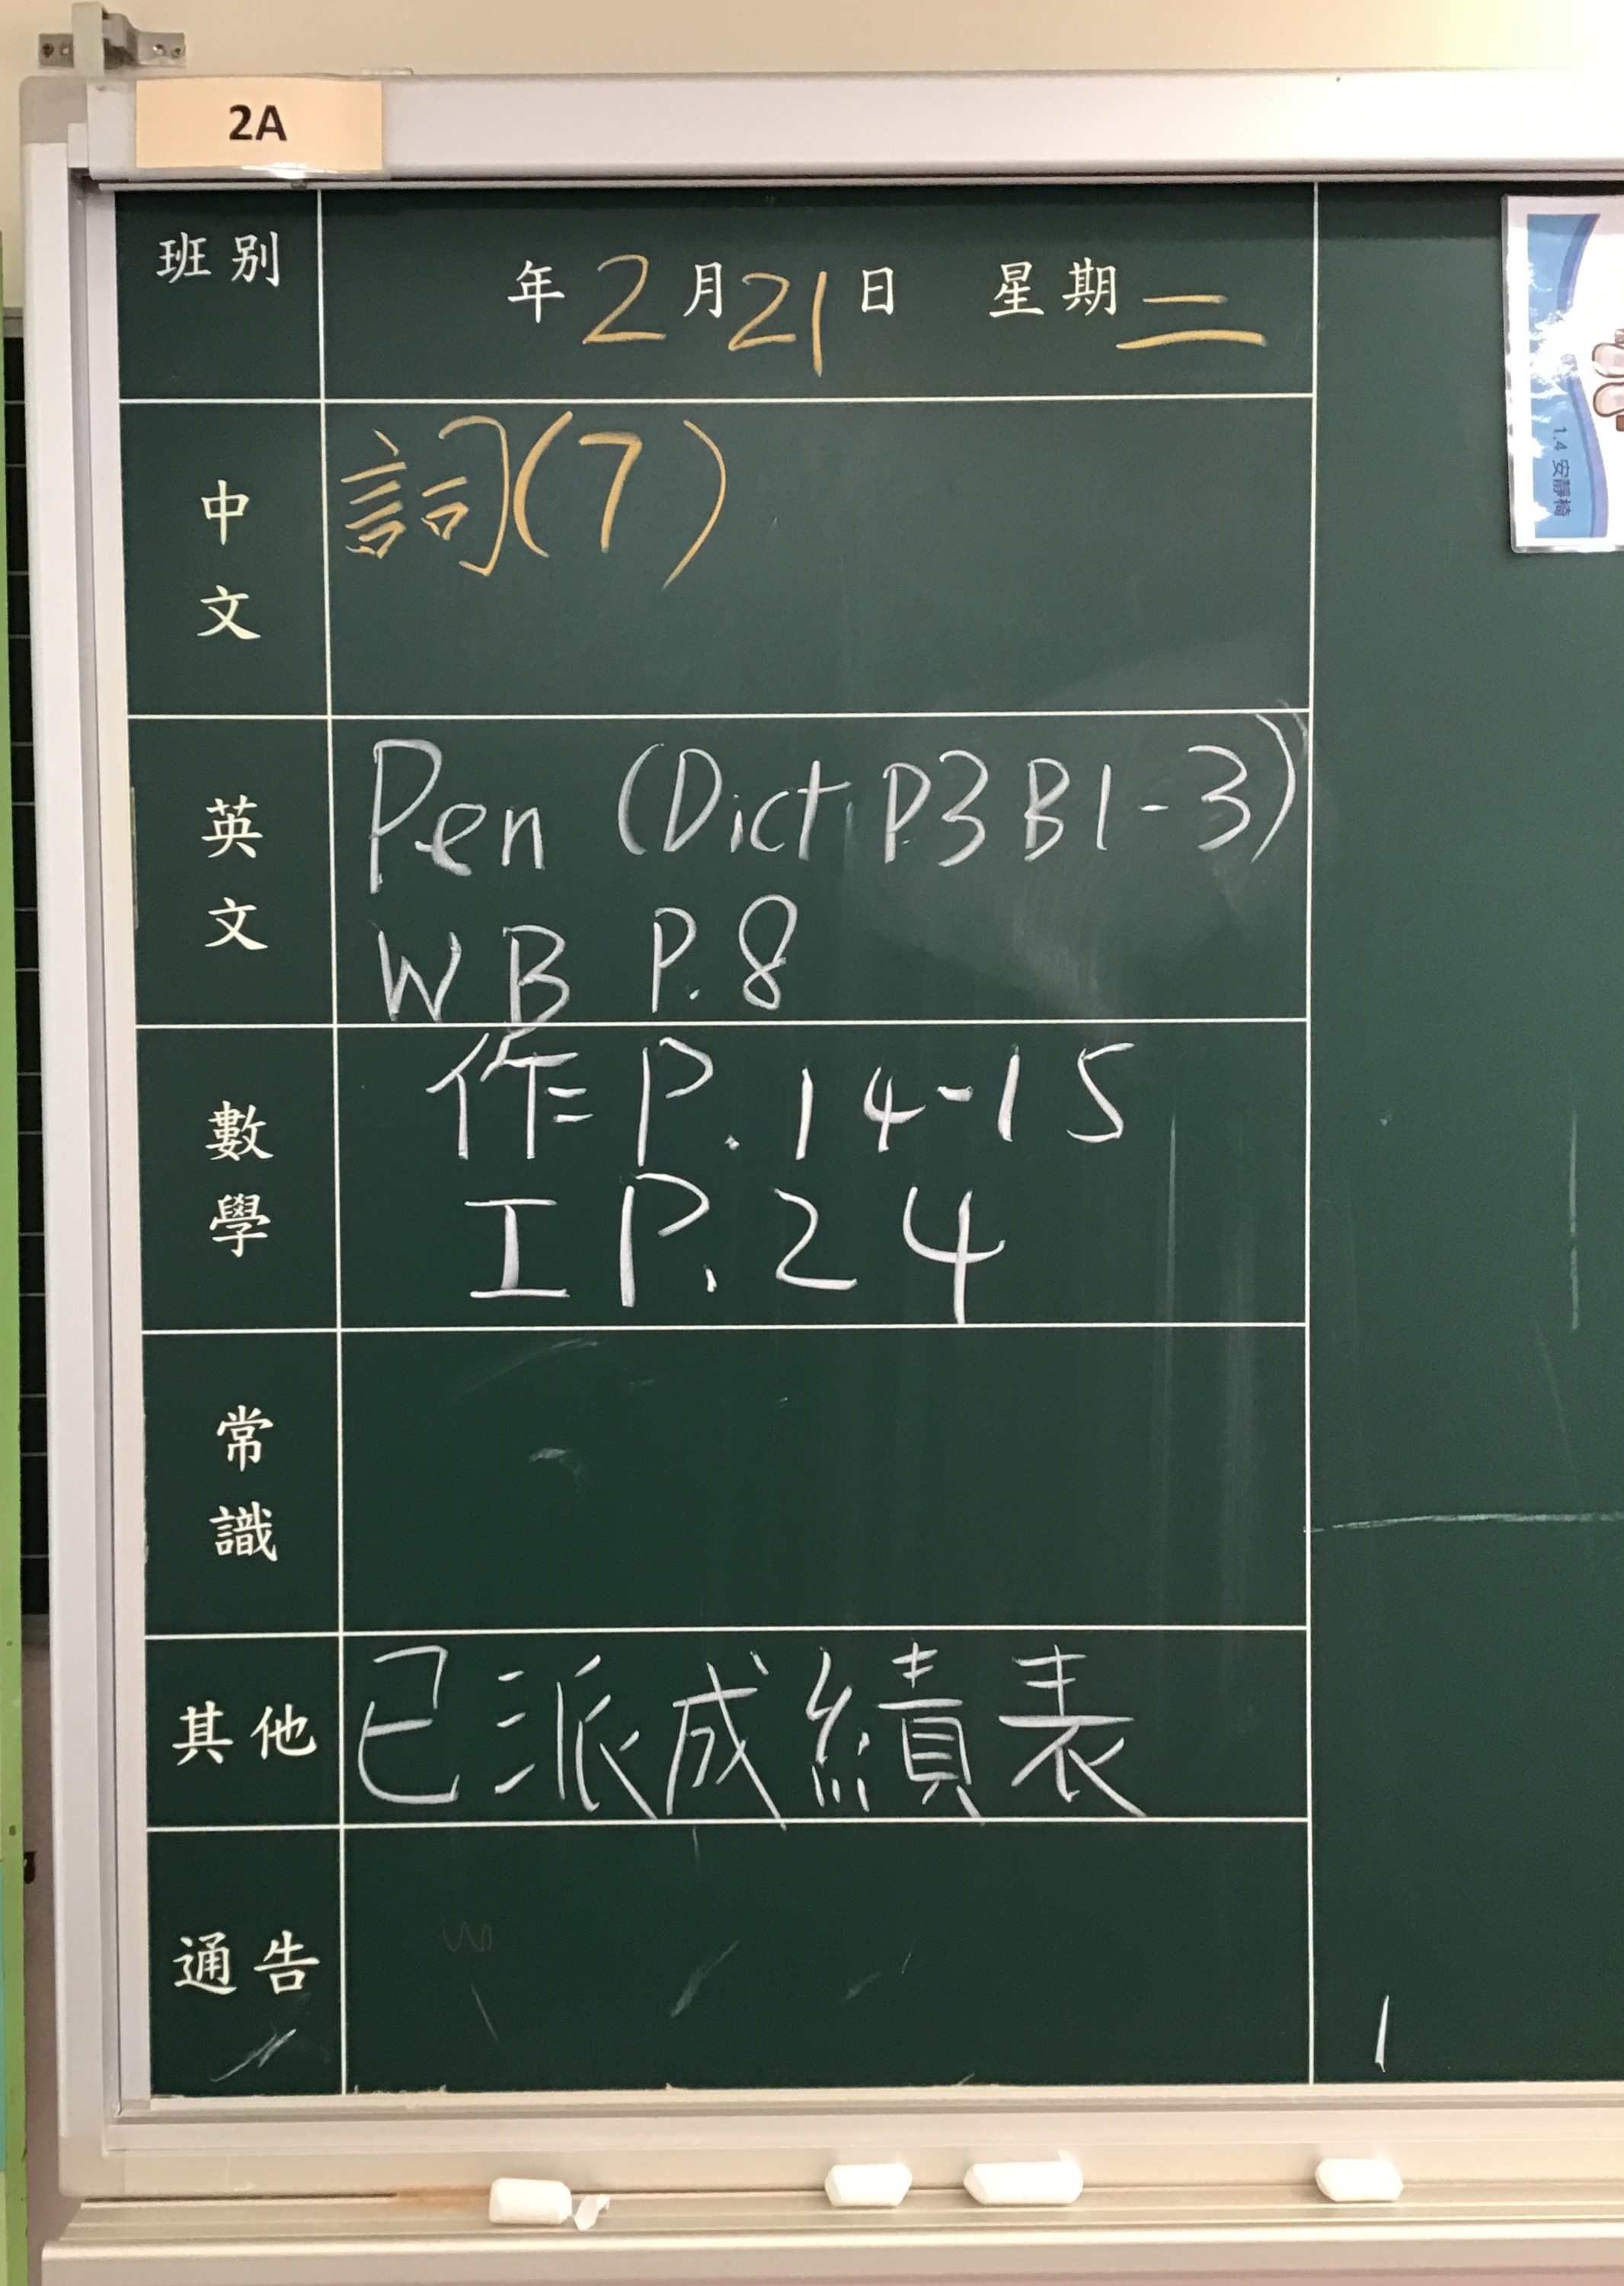 2A
班別
年2月21日 星期二
中文
詞(7)
英文
Pen (Dict P.3 B1-3)
WB P.8
數學
作P.14-15
工P.24
常識
其他
已派成績表
通告
1.4 安靜椅